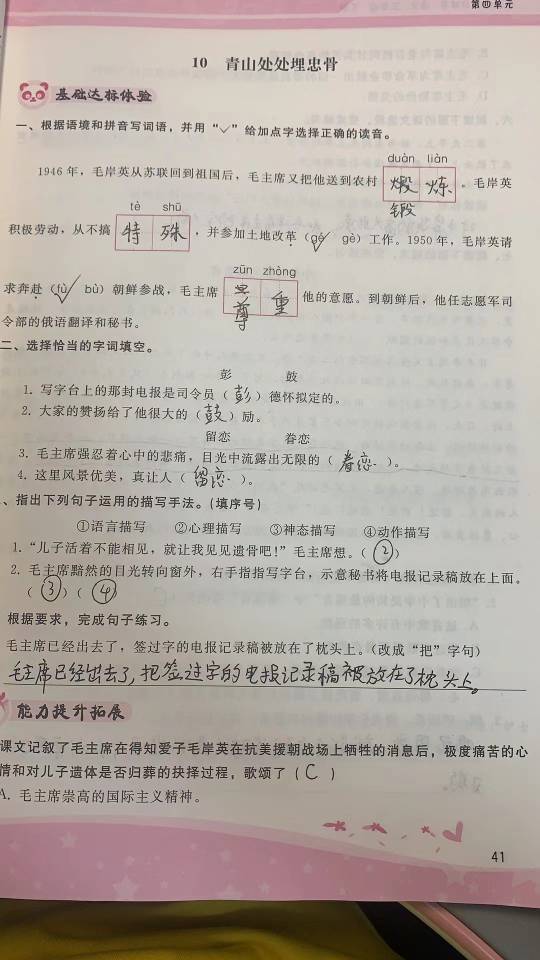 第四单元
10 青山处处埋忠骨
基础达标体验
一、根据语境和拼音写词语，并用“✓”给加点字选择正确的读音。
duàn liàn
1946 年，毛岸英从苏联回到祖国后，毛主席又把他送到农村 煅 炼 。毛岸英
锻
tè shū
积极劳动，从不搞 特 殊 ，并参加土地改革（gé✓ gè）工作。1950 年，毛岸英请
zūn zhòng
求奔赴（fù✓ bù）朝鲜参战，毛主席 重 他的意愿。到朝鲜后，他任志愿军司
尊
令部的俄语翻译和秘书。
二、选择恰当的字词填空。
彭 鼓
1. 写字台上的那封电报是司令员（彭）德怀拟定的。
2. 大家的赞扬给了他很大的（鼓）励。
留恋 眷恋
3. 毛主席强忍着心中的悲痛，目光中流露出无限的（眷恋）。
4. 这里风景优美，真让人（留恋）。
、指出下列句子运用的描写手法。（填序号）
①语言描写 ②心理描写 ③神态描写 ④动作描写
1.“儿子活着不能相见，就让我见见遗骨吧！”毛主席想。（②）
2. 毛主席黯然的目光转向窗外，右手指指写字台，示意秘书将电报记录稿放在上面。
（③）（④）
根据要求，完成句子练习。
毛主席已经出去了，签过字的电报记录稿被放在了枕头上。（改成“把”字句）
毛主席已经出去了，把签过字的电报记录稿被放在了枕头上。
能力提升拓展
课文记叙了毛主席在得知爱子毛岸英在抗美援朝战场上牺牲的消息后，极度痛苦的心
情和对儿子遗体是否归葬的抉择过程，歌颂了（C）
A. 毛主席崇高的国际主义精神。
41